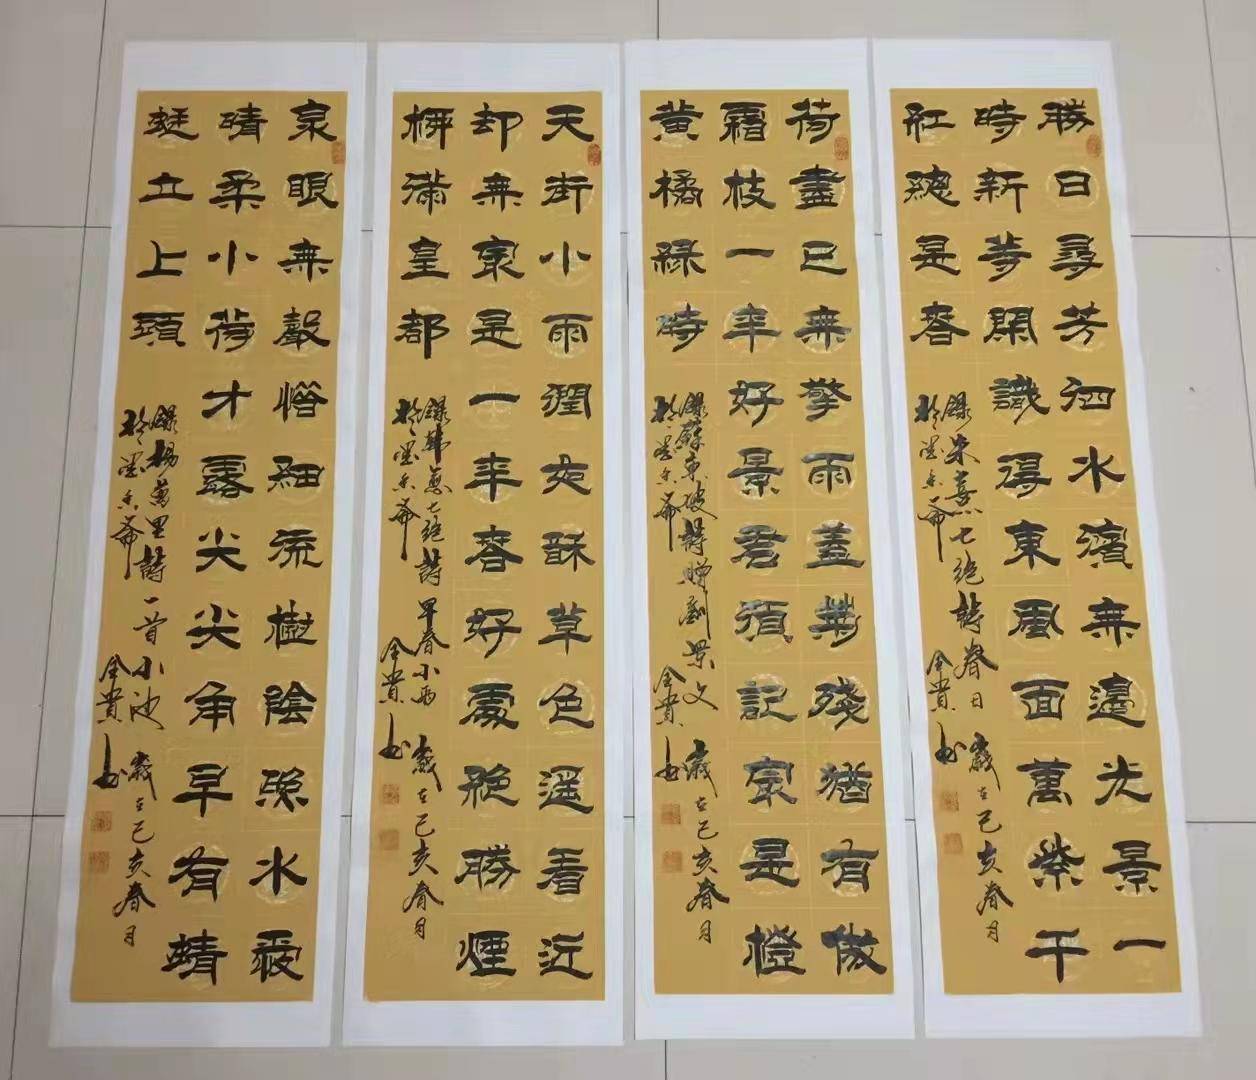 勝日尋芳泗水濱無邊光景一
時新等閑識得東風面萬紫千
紅總是春
錄朱熹七絕詩春日 歲在己亥春月
於墨香齋 全貴书
荷盡已無擎雨蓋菊殘猶有傲
霜枝一年好景君須記最是橙
黃橘綠時
錄蘇東坡詩贈劉景文 歲在己亥春月
於墨香齋 全貴书
天街小雨潤如酥草色遥看近
却無最是一年春好處絕勝煙
柳滿皇都
錄韓愈七絕詩早春小雨 歲在己亥春月
於墨香齋 全貴书
泉眼無聲惜細流樹陰照水愛
晴柔小荷才露尖尖角早有蜻
蜓立上頭
錄楊萬里詩一首小池 歲在己亥春月
於墨香齋 全貴书